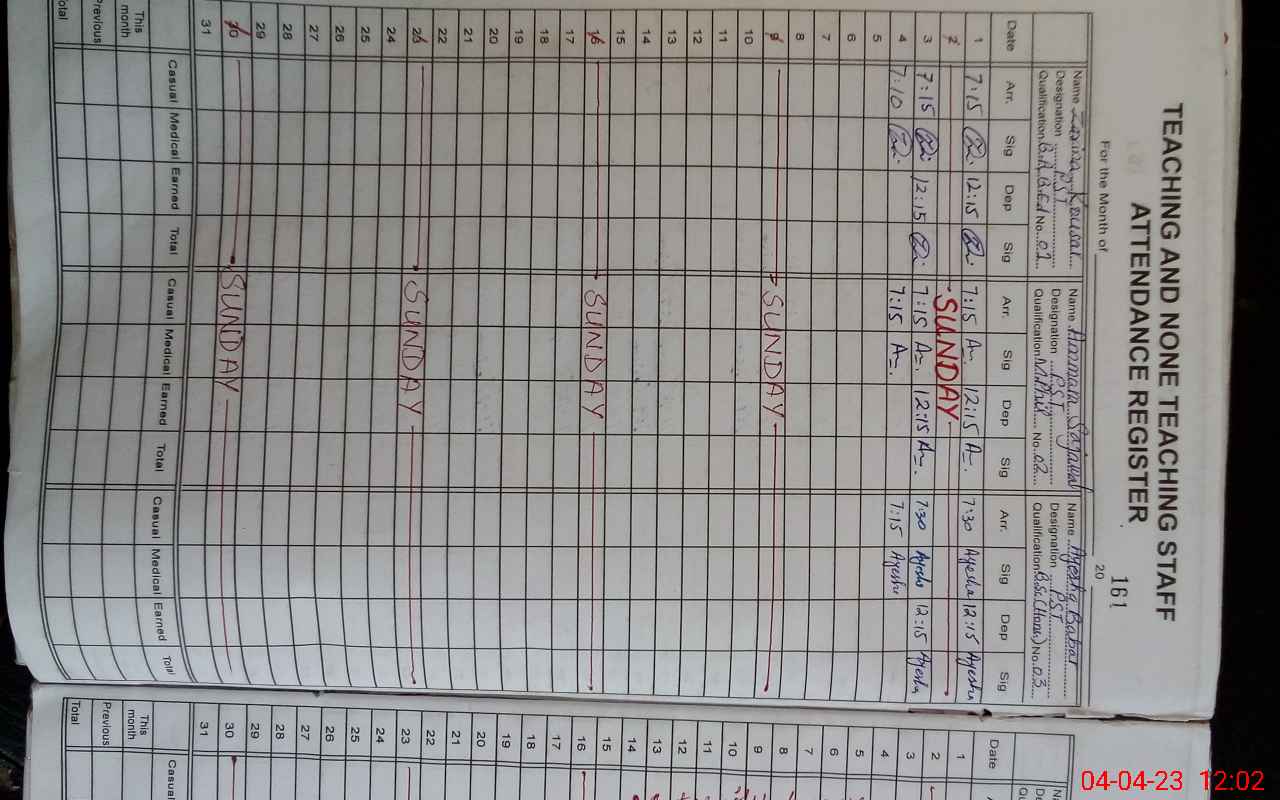 TEACHING AND NONE TEACHING STAFF
ATTENDANCE REGISTER
161
For the Month of 20
Name Zunira Kousar Name Ammara Sajawal Name Ayesha Babar
Designation PST Designation PST Designation PST
Qualification B.A, B.Ed No. 01 Qualification M.Phil No. 02 Qualification B.Sc (Hons) No. 03
Date Arr. Sig Dep Sig Arr. Sig Dep Sig Arr. Sig Dep Sig
1 7:15 12:15 7:15 A 12:15 A 7:30 Ayesha 12:15 Ayesha
2 SUNDAY
3 7:15 12:15 7:15 A 12:15 A 7:30 Ayesha 12:15 Ayesha
4 7:10 7:15 A 7:15 Ayesha
5
6
7
8
9 SUNDAY
10
11
12
13
14
15
16 SUNDAY
17
18
19
20
21
22
23 SUNDAY
24
25
26
27
28
29
30 SUNDAY
31
Casual Medical Earned Total Casual Medical Earned Total Casual Medical Earned Total
This month
Previous
Total
Date
1
2
3
4
5
6
7
8
9
10
11
12
13
14
15
16
17
18
19
20
21
22
23
24
25
26
27
28
29
30
31
Casual
This month
Previous
Total
04-04-23 12:02